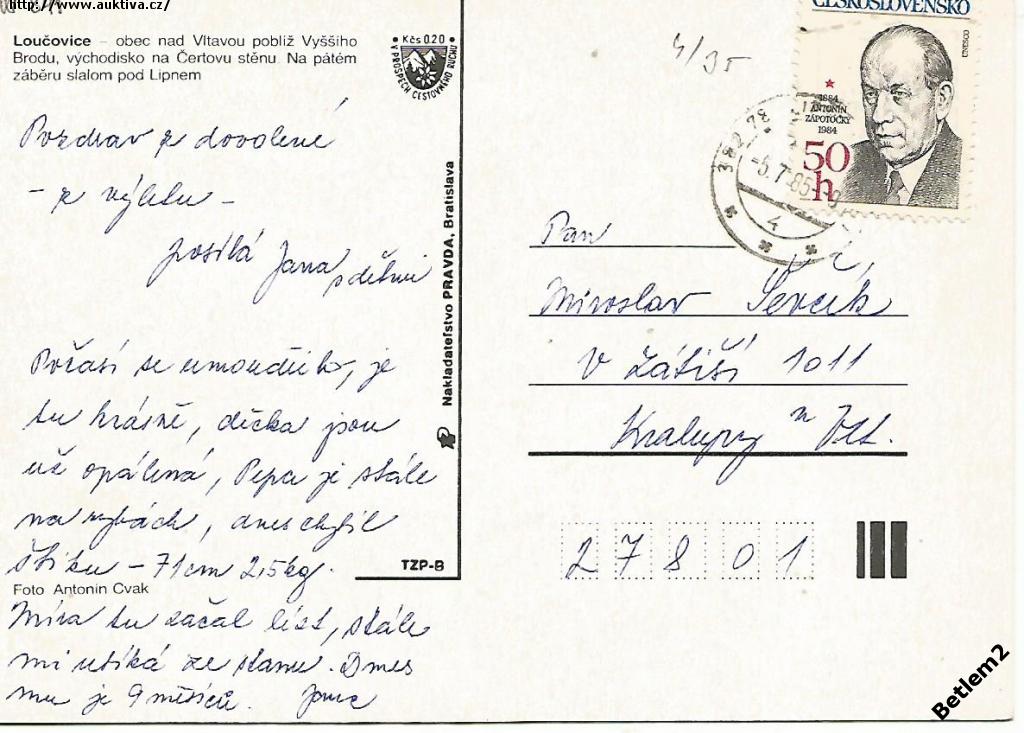 http://www.auktiva.cz/
Loučovice – obec nad Vltavou poblíž Vyššího
Brodu, východisko na Čertovu stěnu. Na pátém
záběru slalom pod Lipnem
Kčs 0,20
V PROSPĚCH CESTOVNÍHO RUCHU
Pozdrav z dovolené
– z výletu –
posílá Jana
s dětmi
Počasí se umoudřilo, je
tu krásně, děcka jsou
už opálená, Pepa je stále
na rybách, dnes chytil
štiku – 71cm 2,5kg.
Foto Antonín Cvak
Míra tu začal lézt, stále
mi utíká ze stanu. Dnes
mu je 9 měsíců.
Nakladateľstvo PRAVDA, Bratislava
TZP-B
4/35
ČESKOSLOVENSKO
1884
ANTONÍN
ZÁPOTOCKÝ
1984
50
h
382 78
-5.7.85-9
4
Pan
Miroslav Ševčík
v Zátiší 1011
Kralupy n Vlt.
27801
Betlem2